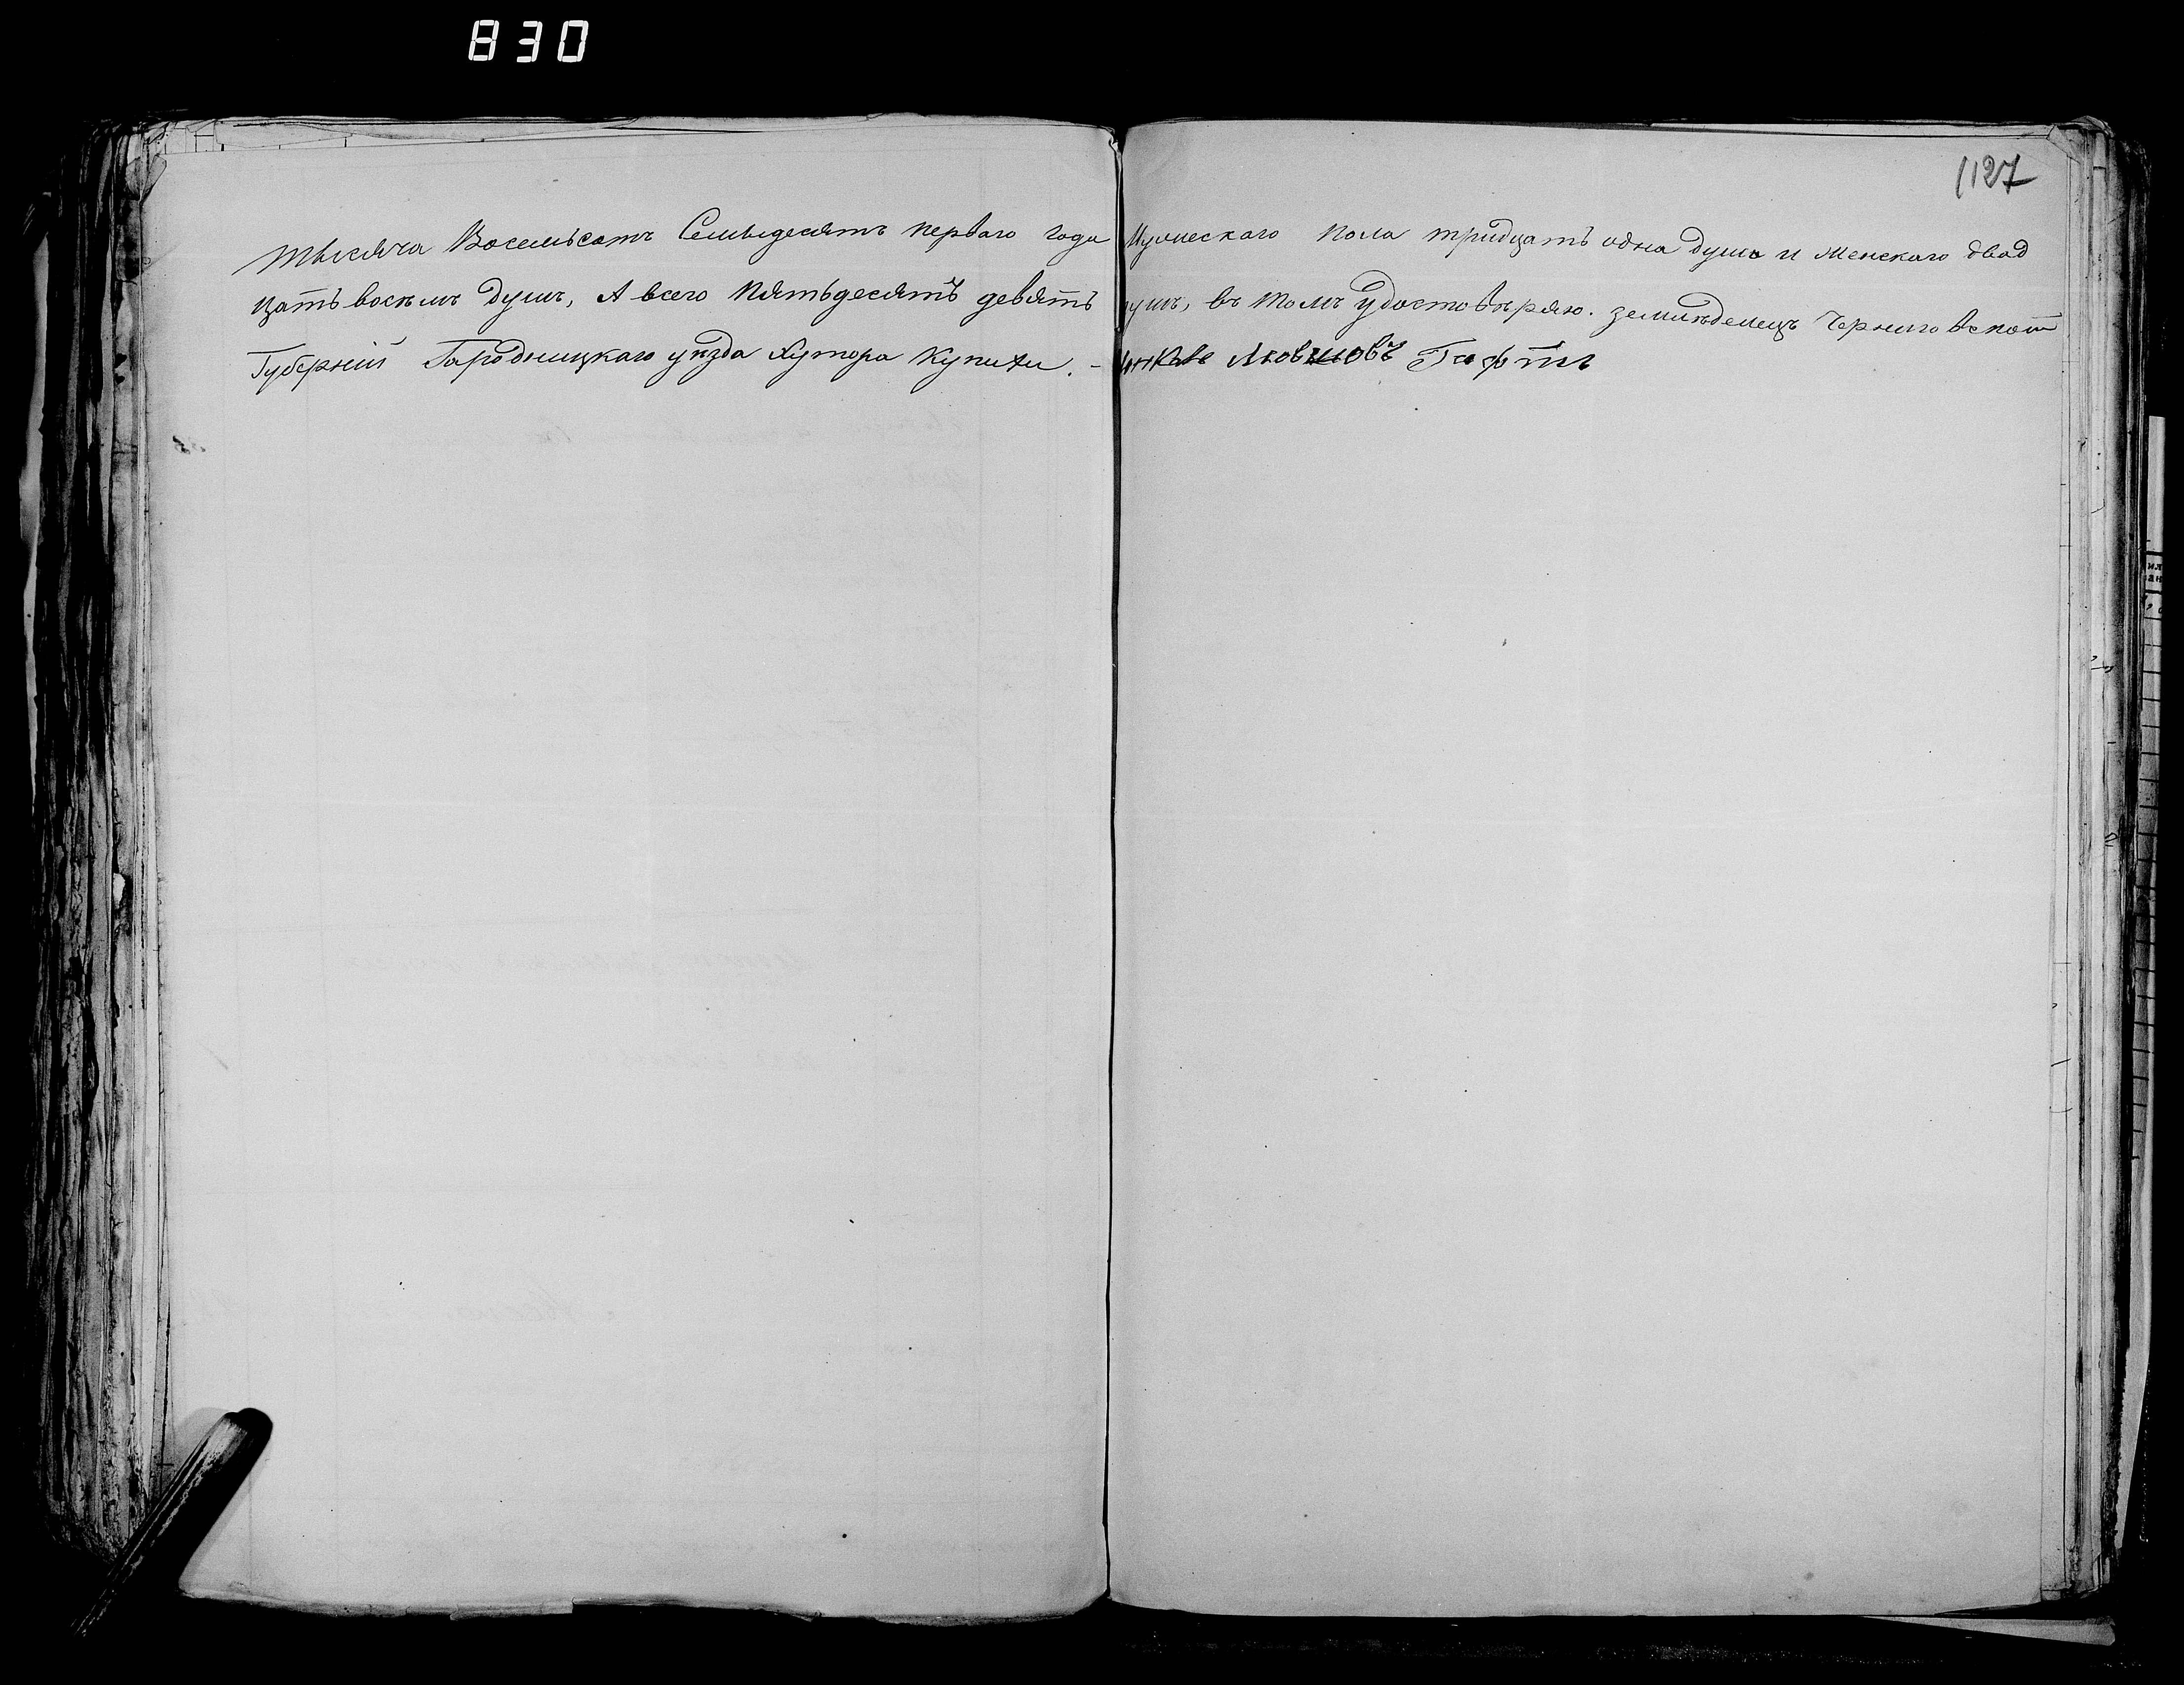 830
1127
Тысяча Восемьсотъ Семьдесятъ перваго года Мужескаго пола тридцать одна душа и женскаго двад
цать восѣмъ душъ, А всего Пятьдесятъ девять душъ, въ томъ удостовѣряю. земледелецъ Черниговской
Губерній Городницкаго уѣзда Хутора Кутихи. -